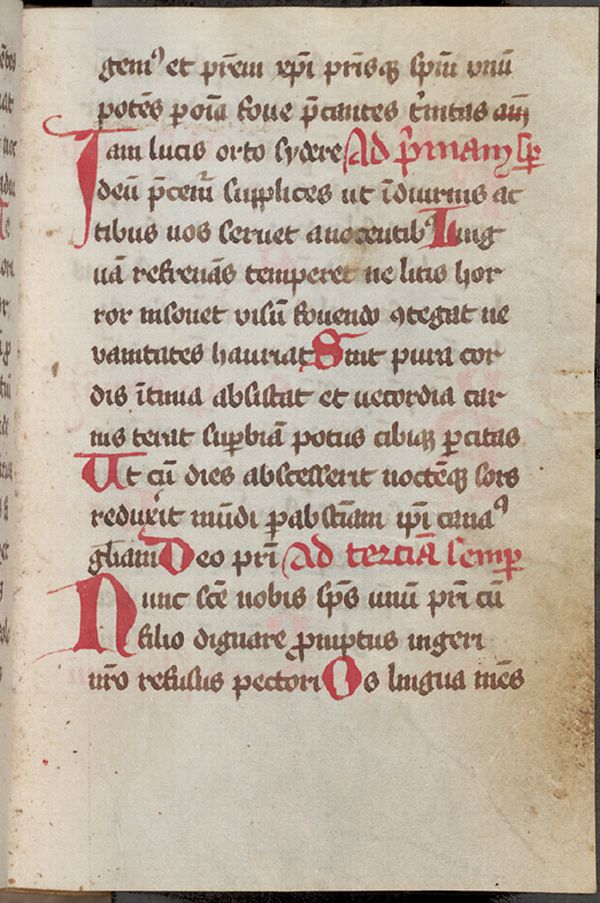 gem⁹ et p̄rem xp̄i p̄risq₃ sp̄m unū
potēs p oīa foue p̄cantes t̾nitas am̄
Iam lucis orto sydere Ad p̄mam sp̄
deū p̄cem̾ supplices ut ī diurnis ac
tibus nos seruet a nocentib⁹ Ling
uā refrenās temperet ne litis hor
ror insonet uisū fouendo ꝯtegat ne
uanitates hauriat Sint pura cor
dis ītima absistat et uecordia car
nis terat sup̱biā potus cibiq₃ p̱citas
Ut cū dies abscesserit noctēq₃ sors
reduxerit mūdi p̱ abstīam ip̄i cana⁹
gl̄iam Deo p̄ri Ad terciā semp̱
Nunc sc̄e nobis sp̄s unū p̄ri cū
filio dignare promptus ingeri
nr̄o refusus pectori Os lingua mēs